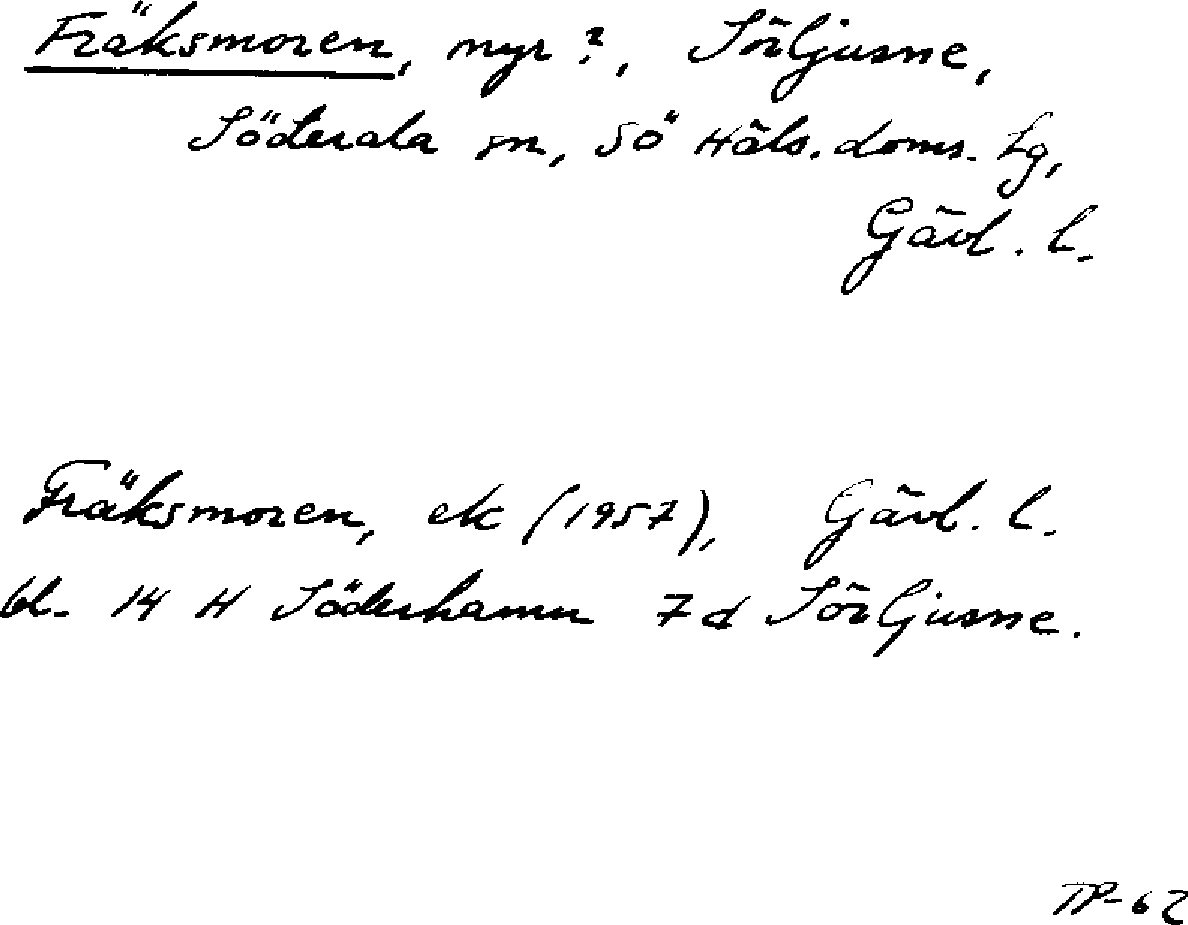 Fräksmoren, myr?, Sörljusne,
Söderala sn, SÖ Häls. doms. tg,
Gävl. l.
Fräksmoren, ek (1957), Gävl. l.
bl. 14 H Söderhamn 7d Sörljusne.
TP-62